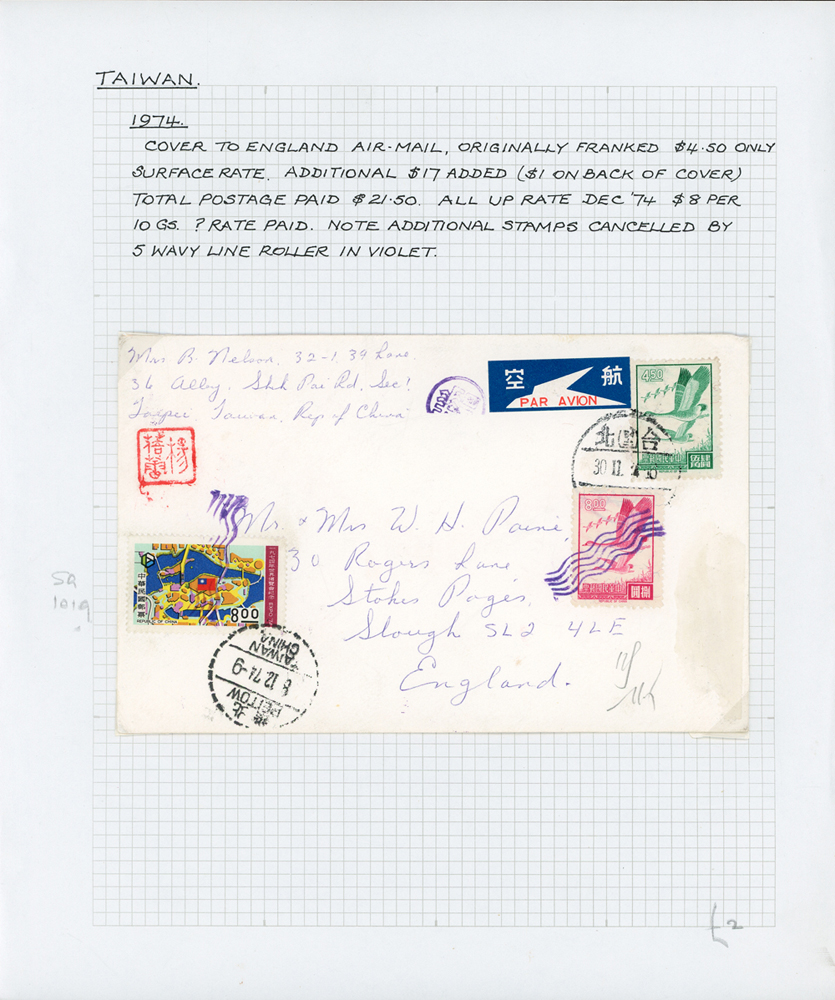 TAIWAN.
1974.
COVER TO ENGLAND AIR-MAIL, ORIGINALLY FRANKED $4.50 ONLY
SURFACE RATE. ADDITIONAL $17 ADDED ($1 ON BACK OF COVER)
TOTAL POSTAGE PAID $21.50. ALL UP RATE DEC '74 $8 PER
10 GS. ? RATE PAID. NOTE ADDITIONAL STAMPS CANCELLED BY
5 WAVY LINE ROLLER IN VIOLET.
Mrs B. Nelson, 32-1, 39 Lane,
36 Alley, Shh Pai Rd, Sec 1
Taipei, Taiwan, Rep of China
空 航
PAR AVION
450
中華民國郵票
北 台
30 11
800
中華民國郵票
捌圓
REPUBLIC OF CHINA
Mr. & Mrs W. H. Paine,
30 Rogers Lane
Stokes Poges,
Slough SL2 4LE
England.
中華民國郵票
EXPO '74
8.00
REPUBLIC OF CHINA
TAIWAN
CHINA
8.12.74-9
PEITOW
北
SG
1019
£2